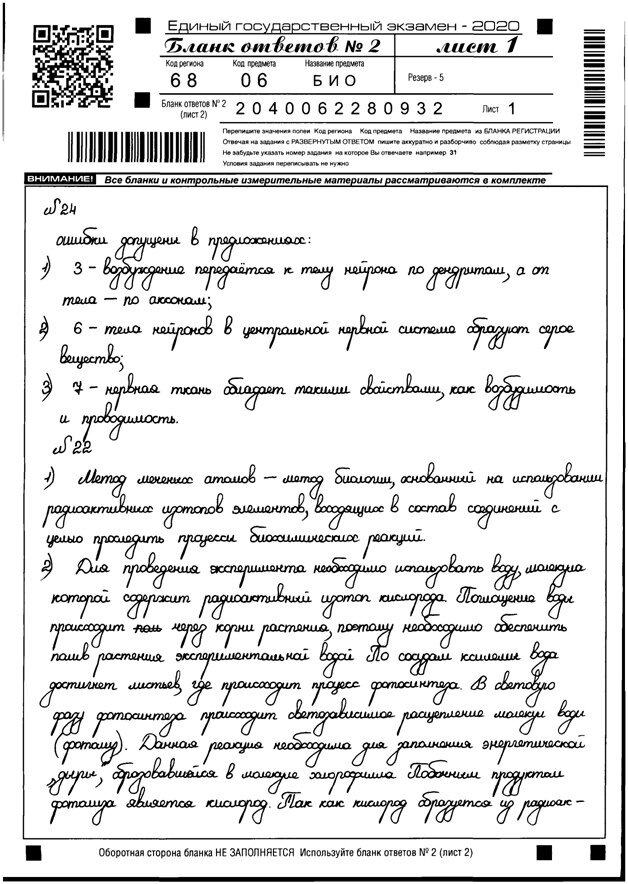 Единый государственный экзамен - 2020
Бланк ответов № 2 лист 1
Код региона Код предмета Название предмета
68 06 БИО Резерв - 5
Бланк ответов № 2 (лист 2) 2040062280932 Лист 1
Перепишите значения полей Код региона Код предмета Название предмета из БЛАНКА РЕГИСТРАЦИИ
Отвечая на задания с РАЗВЕРНУТЫМ ОТВЕТОМ пишите аккуратно и разборчиво соблюдая разметку страницы
Не забудьте указать номер задания на которое Вы отвечаете например 31
Условия задания переписывать не нужно
ВНИМАНИЕ! Все бланки и контрольные измерительные материалы рассматриваются в комплекте
№24
ошибки допущены в предложениях:
1) 3 – возбуждение передаётся к телу нейрона по дендритам, а от
тела – по аксонам;
2) 6 – тела нейронов в центральной нервной системе образуют серое
вещество;
3) 7 – нервная ткань обладает такими свойствами, как возбудимость
и проводимость.
№22
1) Метод меченых атомов – метод биологии, основанный на использовании
радиоактивных изотопов элементов, входящих в состав соединений с
целью проследить процессы биохимических реакций.
2) Для проведения эксперимента необходимо использовать воду, молекула
которой содержит радиоактивный изотоп кислорода. Поглощение воды
происходит через корни растения, поэтому необходимо обеспечить
полив растения экспериментальной водой По сосудам ксилемы вода
достигнет листьев, где происходит процесс фотосинтеза. В световую
фазу фотосинтеза происходит светозависимое расщепление молекул воды
(фотолиз). Данная реакция необходима для заполнения энергетической
„дыры", образовавшейся в молекуле хлорофилла Побочным продуктом
фотолиза является кислород. Так как кислород образуется из радиоак –
Оборотная сторона бланка НЕ ЗАПОЛНЯЕТСЯ Используйте бланк ответов № 2 (лист 2)